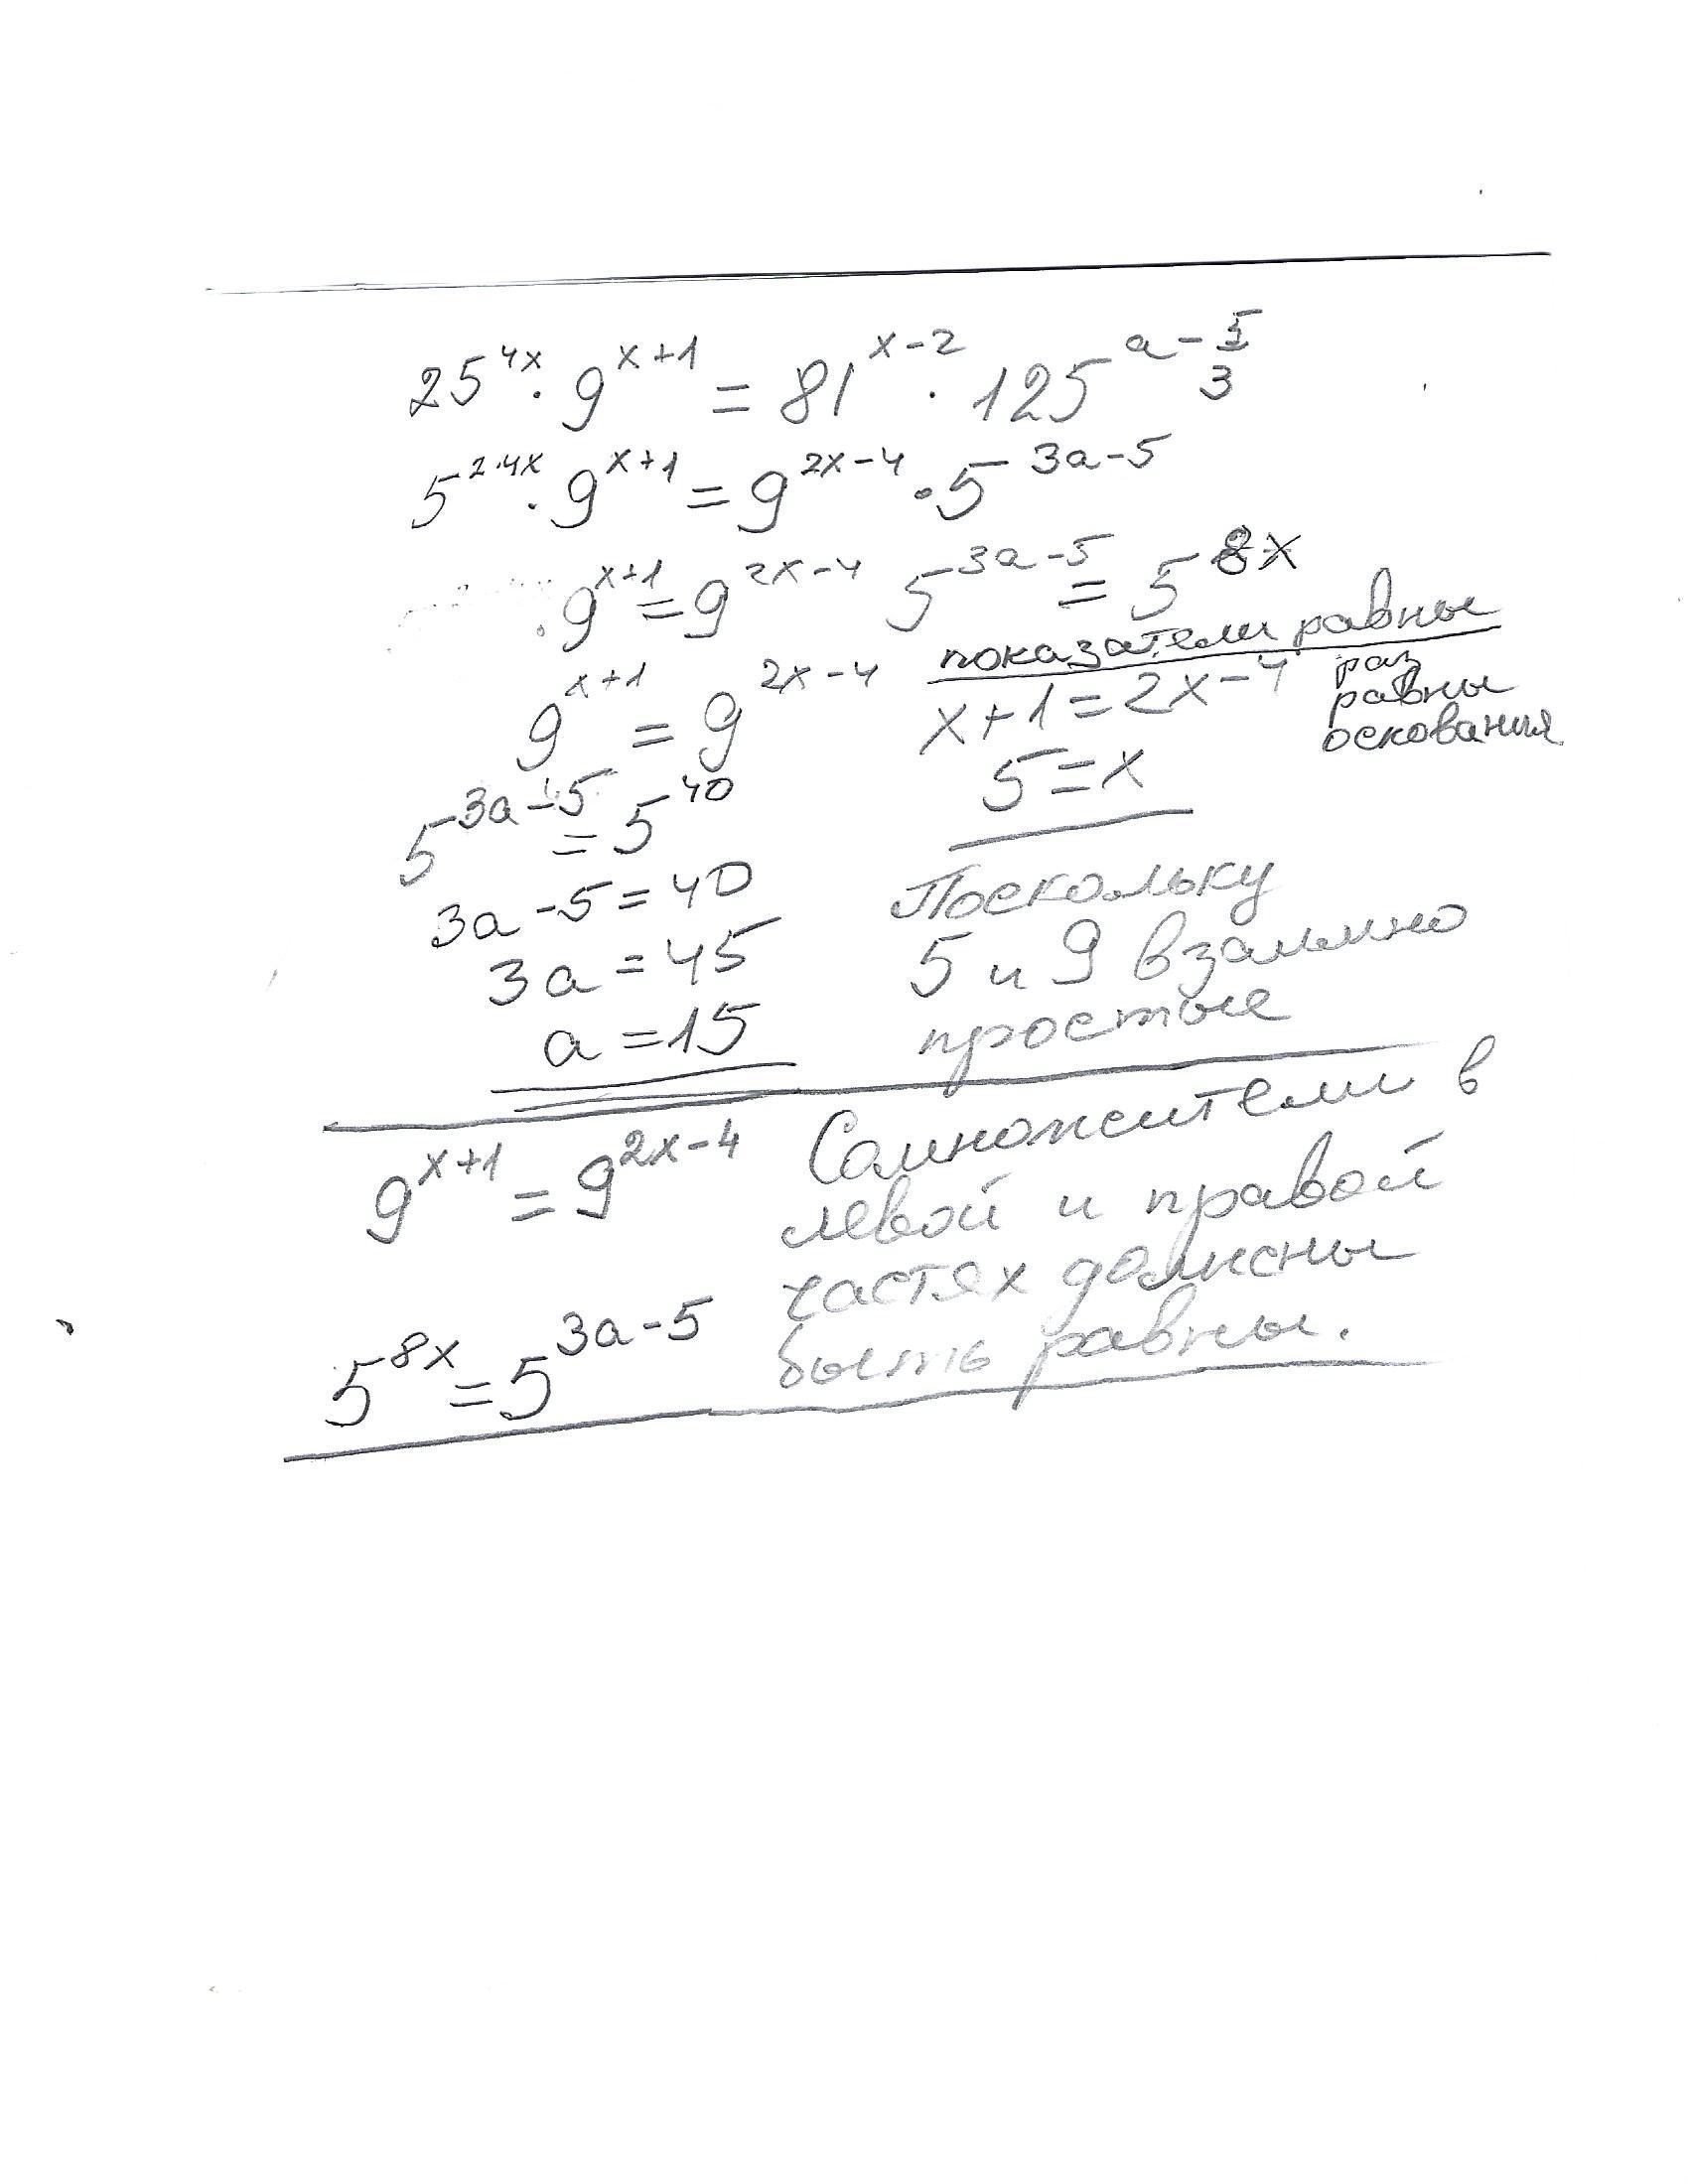 25^{4x} · 9^{x+1} = 81^{x-2} · 125^{a-5/3}
5^{2·4x} · 9^{x+1} = 9^{2x-4} · 5^{3a-5}
· 9^{x+1} = 9^{2x-4} 5^{3a-5} = 5^{8x}
показатели равны
9^{x+1} = 9^{2x-4} x+1=2x-4 раз
равны
оскования
5=x
5^{3a-5} = 5^{40}
3a-5=40 Поскольку
3a=45 5 и 9 взаимно
a=15 простые
9^{x+1} = 9^{2x-4} Сомножители в
левой и правой
частях должны
5^{8x} = 5^{3a-5} быть равны.